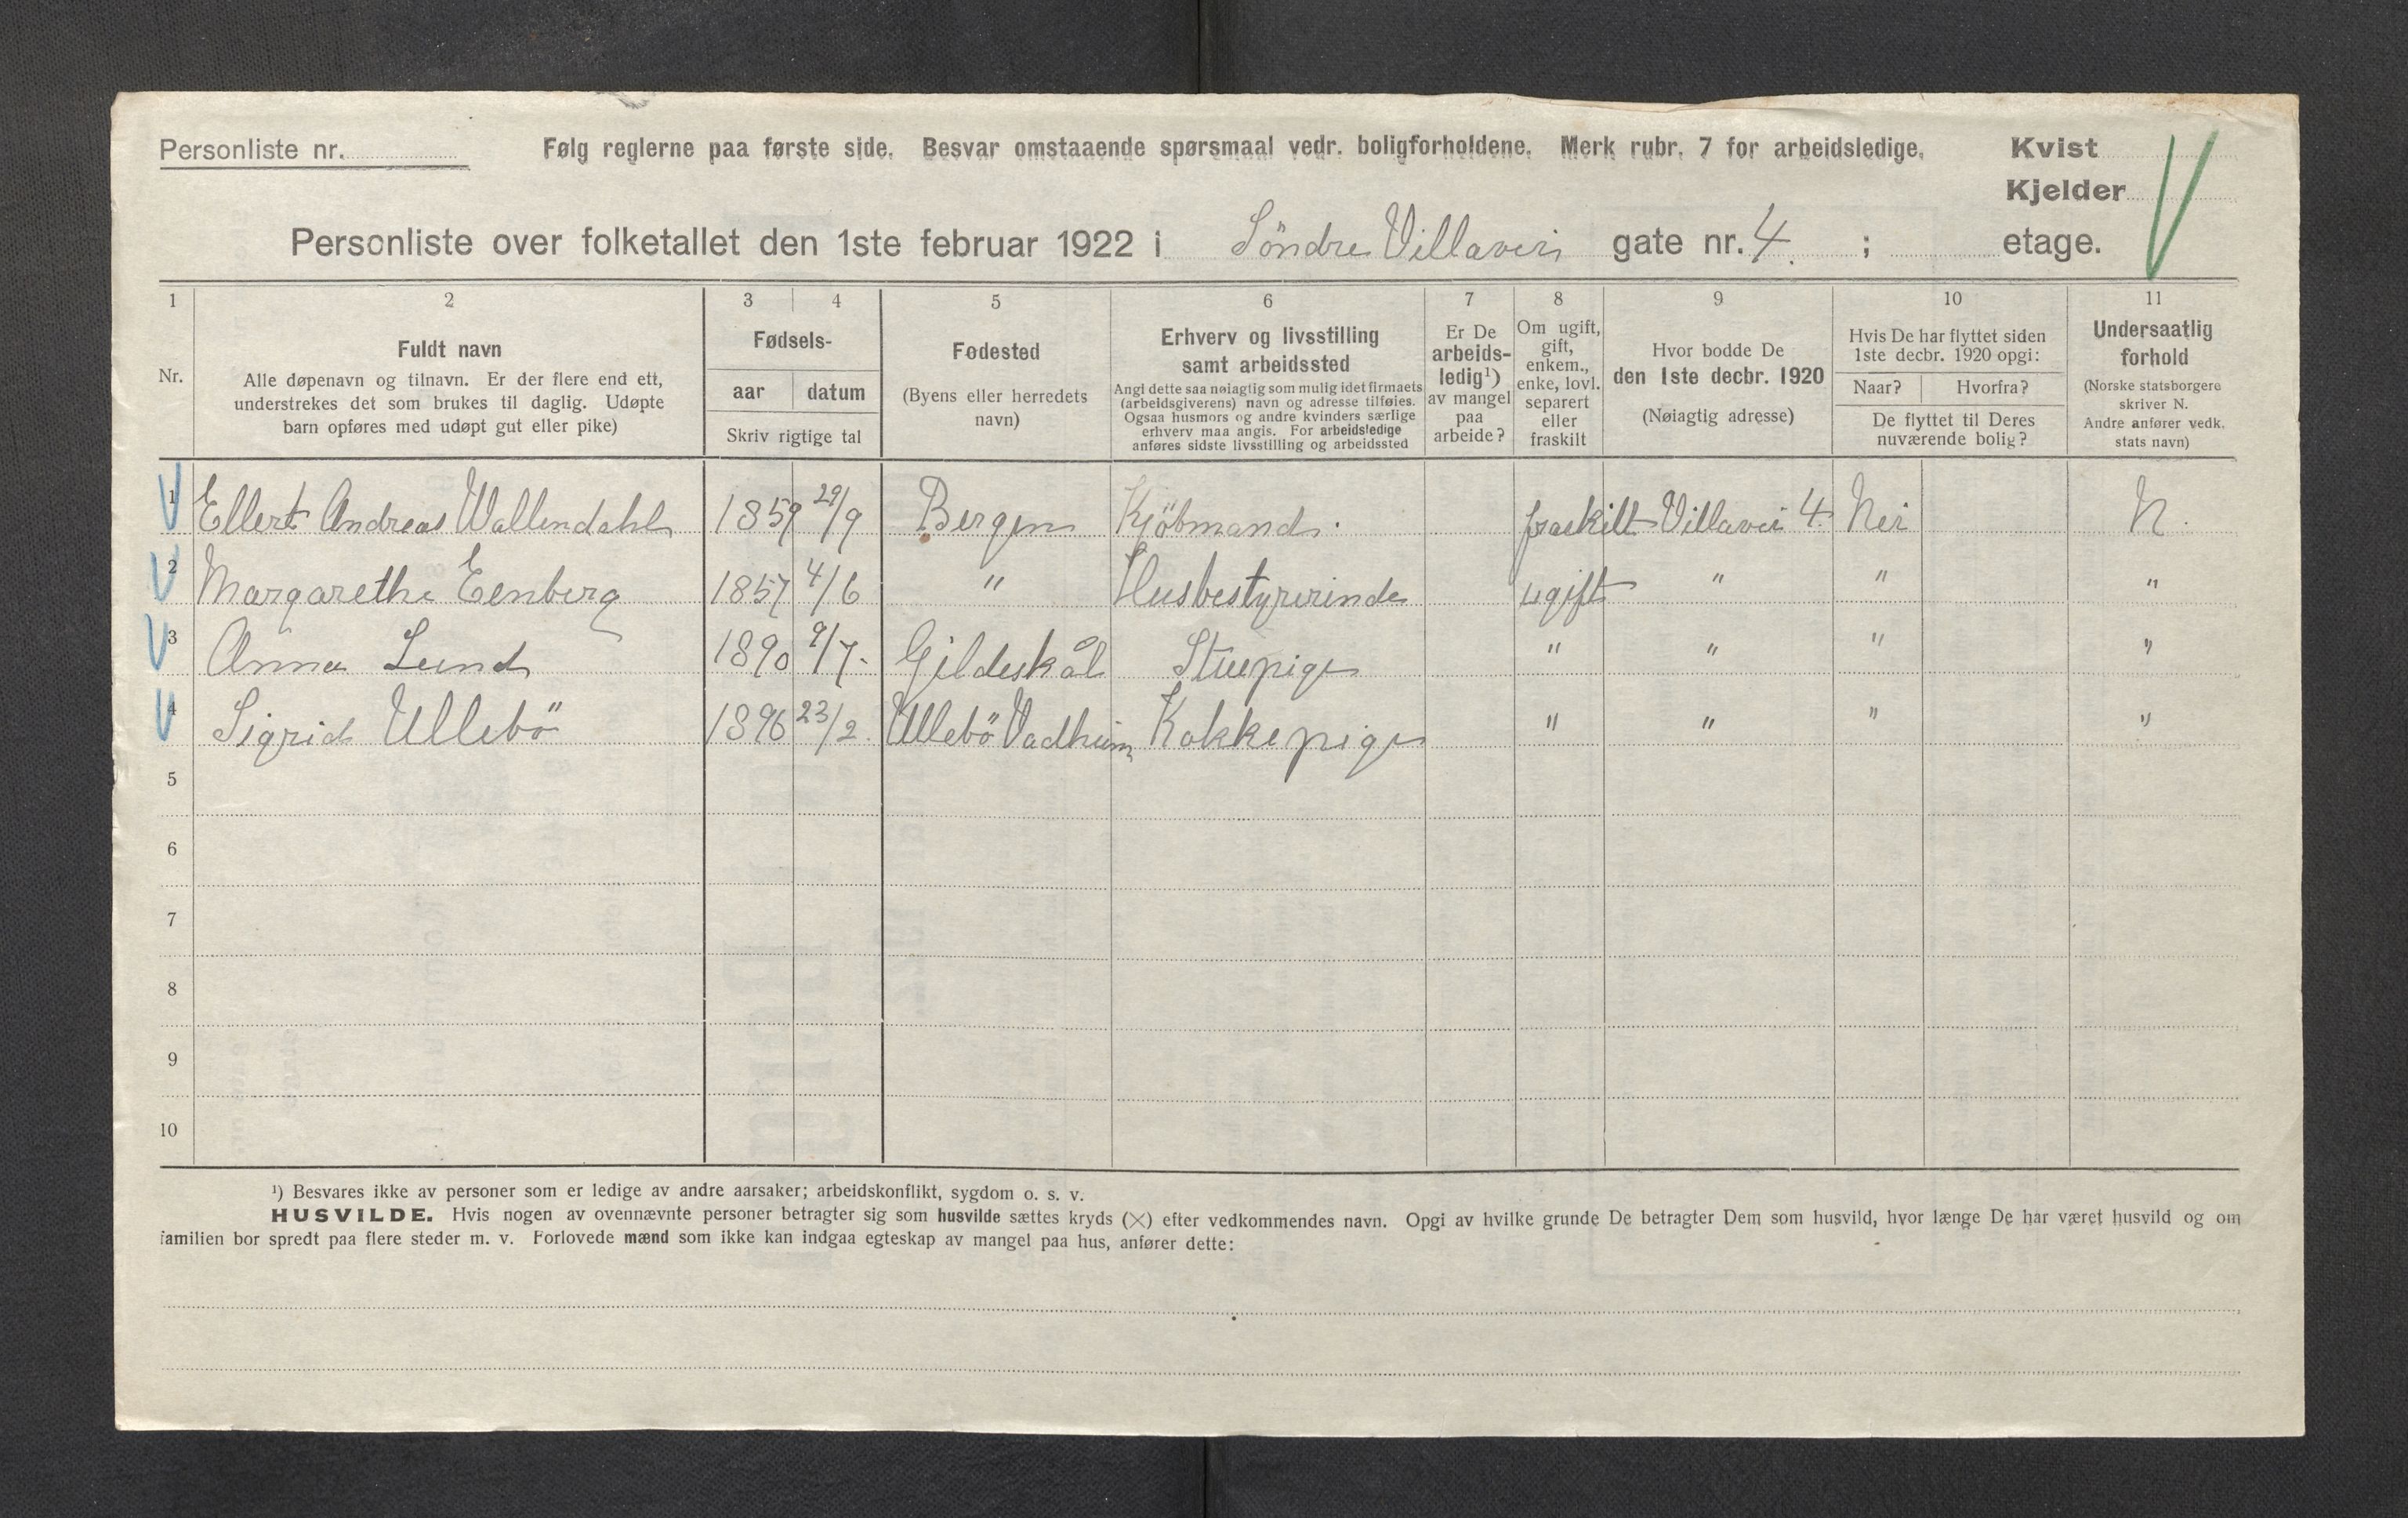 Personliste nr.
Følg reglerne paa første side. Besvar omstaaende spørsmaal vedr. boligforholdene. Merk rubr. 7 for arbeidsledige.
Kvist
Kjelder
Personliste over folketallet den 1ste februar 1922 i Söndre Villavei gate nr. 4. ; etage.
1 2 3 4 5 6 7 8 9 10 11
Nr.
Fuldt navn
Alle døpenavn og tilnavn. Er der flere end ett,
understrekes det som brukes til daglig. Udøpte
barn opføres med udøpt gut eller pike)
Fødsels-
aar datum
Skriv rigtige tal
Fødested
(Byens eller herredets
navn)
Erhverv og livsstilling
samt arbeidssted
Angi dette saa nøiagtig som mulig idet firmaets
(arbeidsgiverens) navn og adresse tilføies.
Ogsaa husmors og andre kvinders særlige
erhverv maa angis. For arbeidsledige
anføres sidste livsstilling og arbeidssted
Er De
arbeids-
ledig¹)
av mangel
paa
arbeide?
Om ugift,
gift,
enkem.,
enke, lovl.
separert
eller
fraskilt
Hvor bodde De
den 1ste decbr. 1920
(Nøiagtig adresse)
Hvis De har flyttet siden
1ste decbr. 1920 opgi:
Naar? Hvorfra?
De flyttet til Deres
nuværende bolig?
Undersaatlig
forhold
(Norske statsborgere
skriver N.
Andre anfører vedk.
stats navn)
1 Ellert Andreas Wallendahl 1859 29/9 Bergen Kjöbmand. fraskilt Villavei 4. Nei N.
2 Margarethe Eenberg 1857 4/6 " Husbestyrerinde ugift " " "
3 Anna Lund 1890 9/7. Gildeskål Stuepige " " " "
4 Sigrid Ullebö 1896 23/2. Ullebö Vadheim Kokkepige " " " "
5
6
7
8
9
10
¹) Besvares ikke av personer som er ledige av andre aarsaker; arbeidskonflikt, sygdom o. s. v.
HUSVILDE. Hvis nogen av ovennævnte personer betragter sig som husvilde sættes kryds (×) efter vedkommendes navn. Opgi av hvilke grunde De betragter Dem som husvild, hvor længe De har været husvild og om
familien bor spredt paa flere steder m. v. Forlovede mænd som ikke kan indgaa egteskap av mangel paa hus, anfører dette: